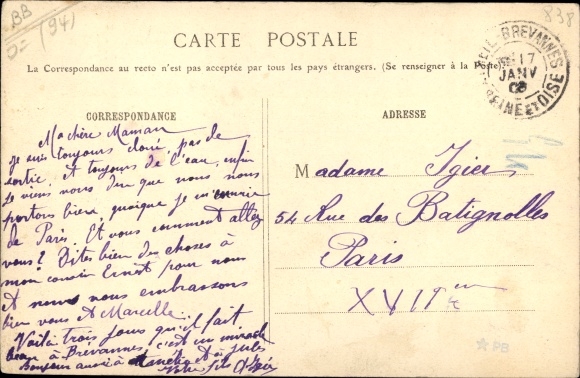 BB
(94)
838
CARTE POSTALE
La Correspondance au recto n'est pas acceptée par tous les pays étrangers. (Se renseigner à la Poste)
BREVANNES
17
JANV
SEINE ET OISE
CORRESPONDANCE
Ma chère Maman
je suis toujours cloué, pas de
sortie, et toujours de l'eau, enfin
je viens vous dire que nous nous
portons bien, quoique je m'ennuie
de Paris. Et vous comment allez
vous? Dites bien des choses à
mon cousin Ernest pour nous
et nous vous embrassons
bien vous et Marcelle.
Voilà trois jours qu'il fait
beau à Brévannes, c'est un miracle
Bonjour aussi à et à Jules
Votre fils
ADRESSE
Madame Igier
54 Rue des Batignolles
Paris
XVII
PB